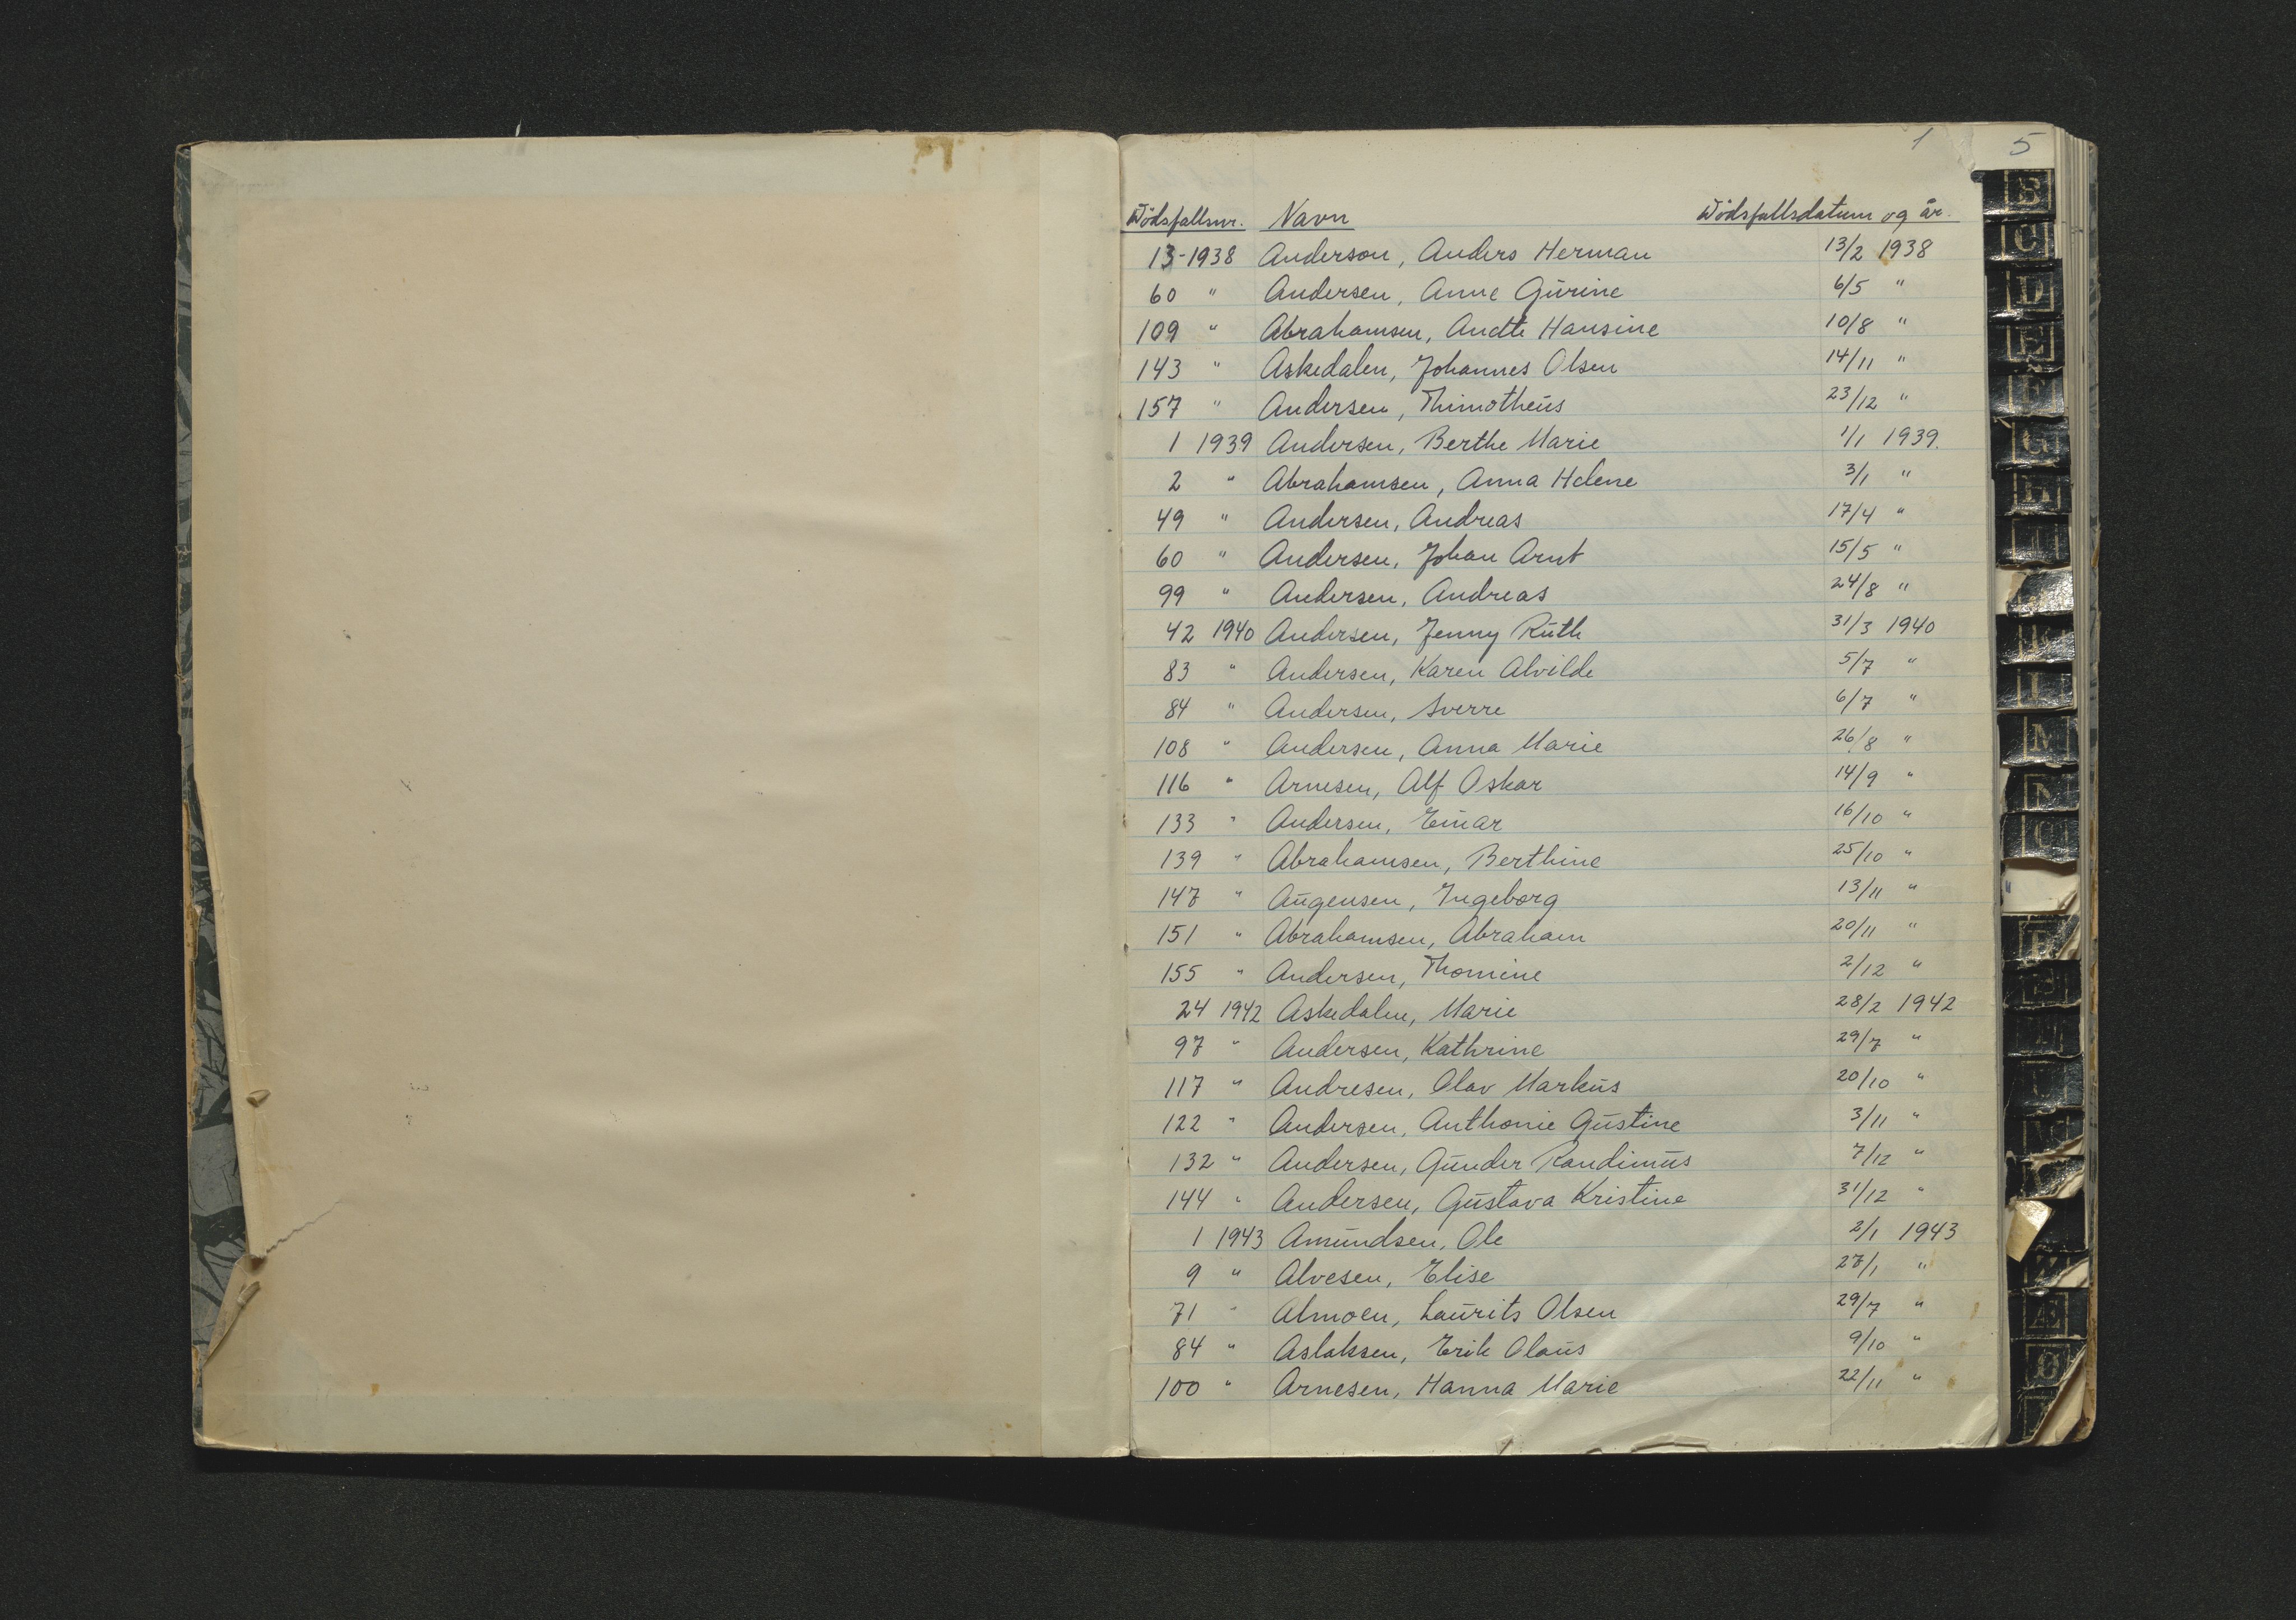 1
5
Dödsfallsnr. Navn Dödsfallsdatum og år.
13-1938 Anderson, Anders Herman 13/2 1938
60 " Andersen, Anne Gurine 6/5 "
109 " Abrahamsen, Hansine 10/8 "
143 " Askedalen, Johannes Olsen 14/11 "
157 " Andersen, Thimotheus 23/12 "
1 1939 Andersen, Berthe Marie 1/1 1939.
2 " Abrahamsen, Anna Helene 3/1 "
49 " Andersen, Andreas 17/4 "
60 " Andersen, Johan Arnt 15/5 "
99 " Andersen, Andreas 24/8 "
42 1940 Andersen, Jenny Ruth 31/3 1940
83 " Andersen, Karen Alvilde 5/7 "
84 " Andersen, Sverre 6/7 "
108 " Andersen, Anna Marie 26/8 "
116 " Arnesen, Alf Oskar 14/9 "
133 " Andersen, Einar 16/10 "
139 " Abrahamsen, Berthine 25/10 "
147 " Augensen, Ingeborg 13/11 "
151 " Abrahamsen, Abraham 20/11 "
155 " Andersen, Thomine 2/12 "
24 1942 Askedalen, Marie 28/2 1942
97 " Andersen, Kathrine 29/7 "
117 " Andresen, Olav Markus 20/10 "
122 " Andersen, Anthonie Gustine 3/11 "
132 " Andersen, Gunder Randinius 7/12 "
144 " Andersen, Gustava Kristine 31/12 "
1 1943 Amundsen, Ole 2/1 1943
9 " Alvesen, Elise 27/1 "
71 " Almoen, Laurits Olsen 29/7 "
84 " Aslaksen, Erik Olaus 9/10 "
100 " Arnesen, Hanna Marie 22/11 "
B
C
D
E
F
G
H
I
K
L
M
N
O
P
R
U
Æ
Ø